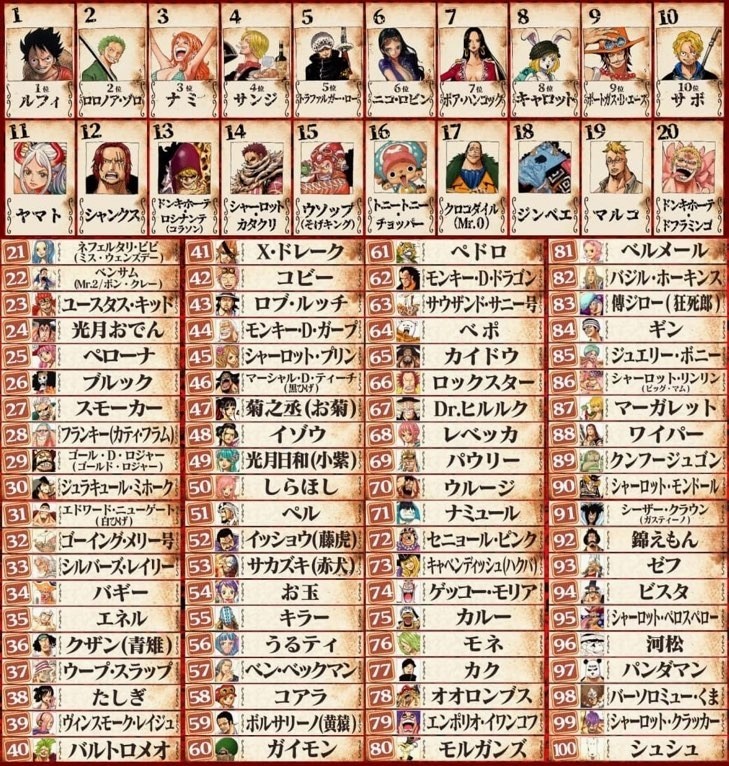 1
1位
ルフィ
2
2位
ロロノア・ゾロ
3
3位
ナミ
4
4位
サンジ
5
5位
トラファルガー・ロー
6
6位
ニコ・ロビン
7
7位
ボア・ハンコック
8
8位
キャロット
9
9位
ポートガス・D・エース
10
10位
サボ
11
ヤマト
12
シャンクス
13
ドンキホーテ
・
ロシナンテ
(コラソン)
14
シャーロット
・
カタクリ
15
ウソップ
(そげキング)
16
トニートニー
・
チョッパー
17
クロコダイル
(Mr.0)
18
ジンベエ
19
マルコ
20
ドンキホーテ
・
ドフラミンゴ
21 ネフェルタリ・ビビ
(ミス・ウェンズデー)
22 ベンサム
(Mr.2/ボン・クレー)
23 ユースタス・キッド
24 光月おでん
25 ペローナ
26 ブルック
27 スモーカー
28 フランキー(カティ・フラム)
29 ゴール・D・ロジャー
(ゴールド・ロジャー)
30 ジュラキュール・ミホーク
31 エドワード・ニューゲート
(白ひげ)
32 ゴーイング・メリー号
33 シルバーズ・レイリー
34 バギー
35 エネル
36 クザン(青雉)
37 ウープ・スラップ
38 たしぎ
39 ヴィンスモーク・レイジュ
40 バルトロメオ
41 X・ドレーク
42 コビー
43 ロブ・ルッチ
44 モンキー・D・ガープ
45 シャーロット・プリン
46 マーシャル・D・ティーチ
(黒ひげ)
47 菊之丞(お菊)
48 イゾウ
49 光月日和(小紫)
50 しらほし
51 ペル
52 イッショウ(藤虎)
53 サカズキ(赤犬)
54 お玉
55 キラー
56 うるティ
57 ベン・ベックマン
58 コアラ
59 ボルサリーノ(黄猿)
60 ガイモン
61 ペドロ
62 モンキー・D・ドラゴン
63 サウザンド・サニー号
64 ベポ
65 カイドウ
66 ロックスター
67 Dr.ヒルルク
68 レベッカ
69 パウリー
70 ウルージ
71 ナミュール
72 セニョール・ピンク
73 キャベンディッシュ(ハクバ)
74 ゲッコー・モリア
75 カルー
76 モネ
77 カク
78 オオロンブス
79 エンポリオ・イワンコフ
80 モルガンズ
81 ベルメール
82 バジル・ホーキンス
83 傳ジロー(狂死郎)
84 ギン
85 ジュエリー・ボニー
86 シャーロット・リンリン
(ビッグ・マム)
87 マーガレット
88 ワイパー
89 クンフージュゴン
90 シャーロット・モンドール
91 シーザー・クラウン
(ガスティーノ)
92 錦えもん
93 ゼフ
94 ビスタ
95 シャーロット・ペロスペロー
96 河松
97 パンダマン
98 バーソロミュー・くま
99 シャーロット・クラッカー
100 シュシュ